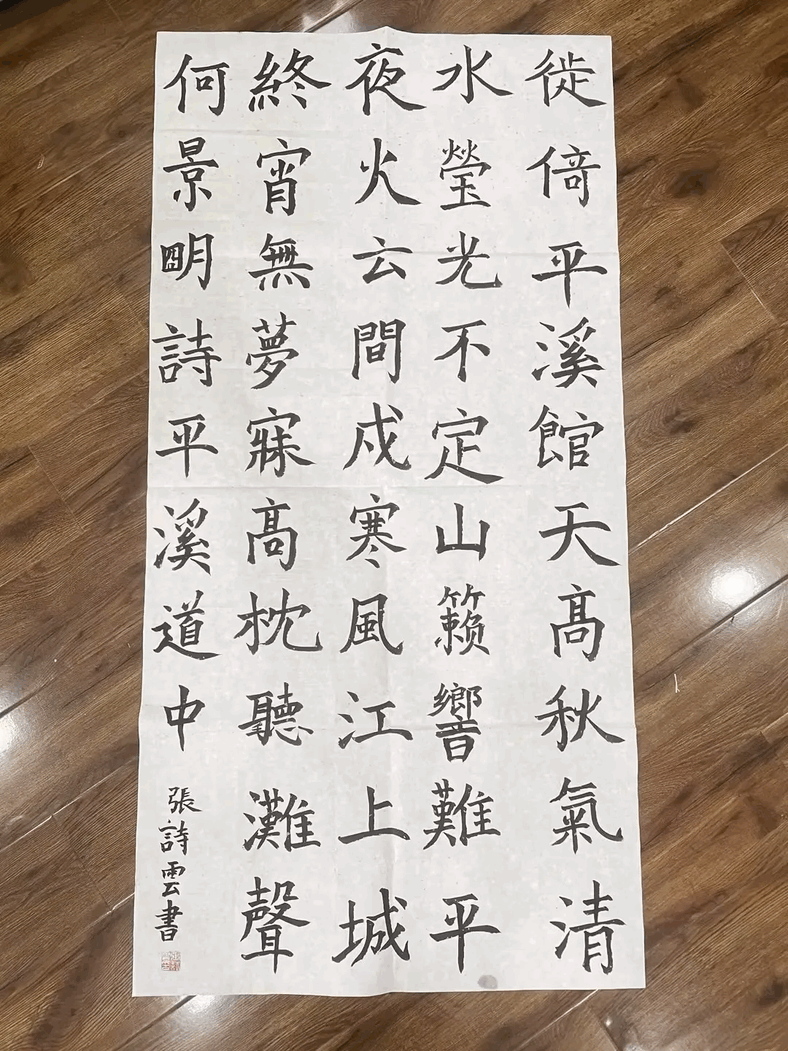 徙倚平溪館天高秋氣清
水瑩光不定山籟響難平
夜火云間戍寒風江上城
終宵無夢寐高枕聽灘聲
何景明詩平溪道中
張詩雲書